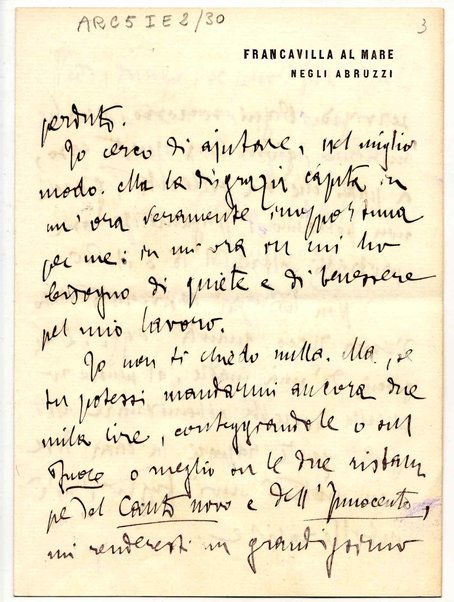 ARC 5 I E 2/30
3
FRANCAVILLA AL MARE
NEGLI ABRUZZI
perduto.
Io cerco di ajutare, nel miglior
modo. Ma la disgrazia càpita in
un' ora veramente inopportuna
per me: in un' ora in cui ho
bisogno di quiete e di benessere
pel mio lavoro.
Io non ti chiedo nulla. Ma, se
tu potessi mandarmi ancora due
mila lire, conteggiandole o sul
Fuoco o meglio su le due ristam
pe del Canto novo e dell' Innocente,
mi renderesti un grandissimo